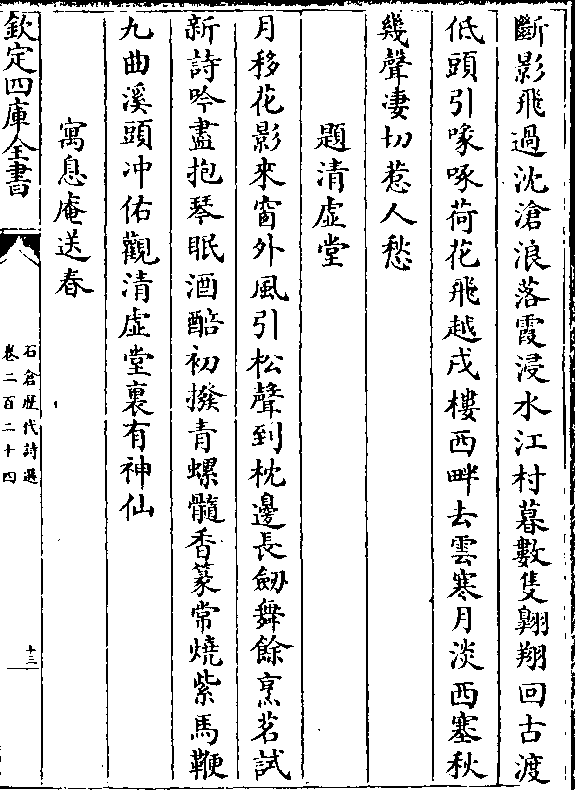 斷影飛過沈滄浪落霞浸水江村暮數隻翺翔回古渡
低頭引喙啄荷花飛越戍樓西畔去雲寒月淡西塞秋
幾聲凄切惹人愁
題清虛堂
月移花影來窗外風引松聲到枕邊長劒舞餘烹茗試
新詩吟盡抱琴眠酒醅初撥青螺髓香篆常燒紫馬鞭
九曲溪頭冲佑觀清虛堂裏有神仙
寓息庵送春
欽定四庫全書
石倉歷代詩選
卷二百二十四
十三